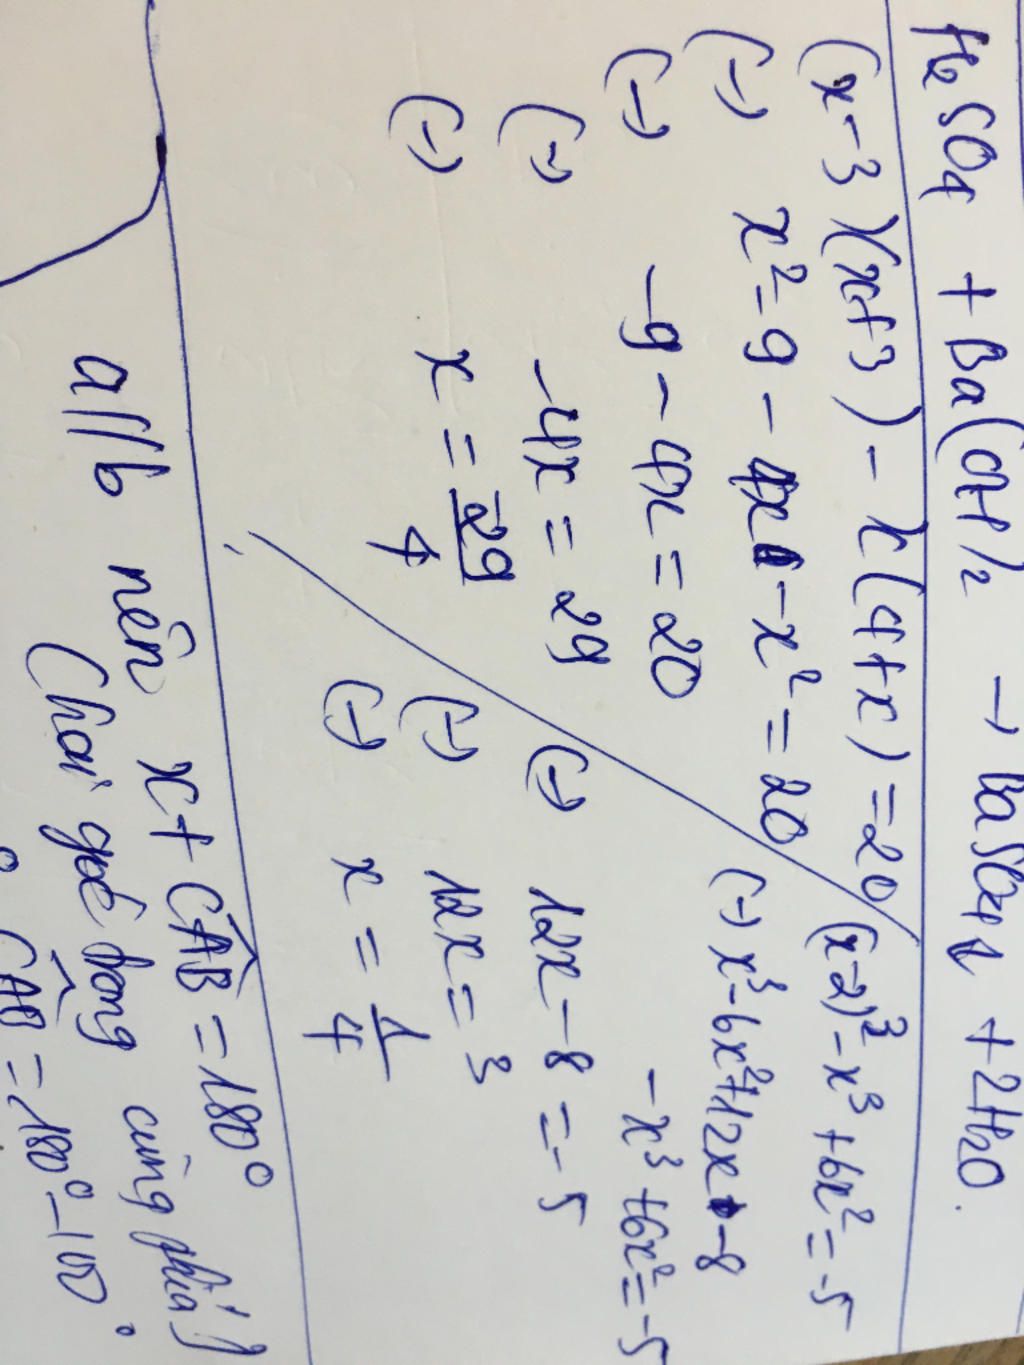 H₂SO₄ + Ba(OH)₂ → BaSO₄↓ + 2H₂O.
(x-3)(x+3) - x(4+x) = 20
(→) x² - 9 - 4x - x² = 20
(→) -9 - 4x = 20
(→) -4x = 29
(→) x = -29/4
(x-2)³ - x³ + 6x² = -5
(→) x³ - 6x² + 12x - 8
- x³ + 6x² = -5
(→) 12x - 8 = -5
(→) 12x = 3
(→) x = 1/4
a//b nên x + CÂB = 180°
(hai góc trong cùng phía)
CÂB = 180° - 100°